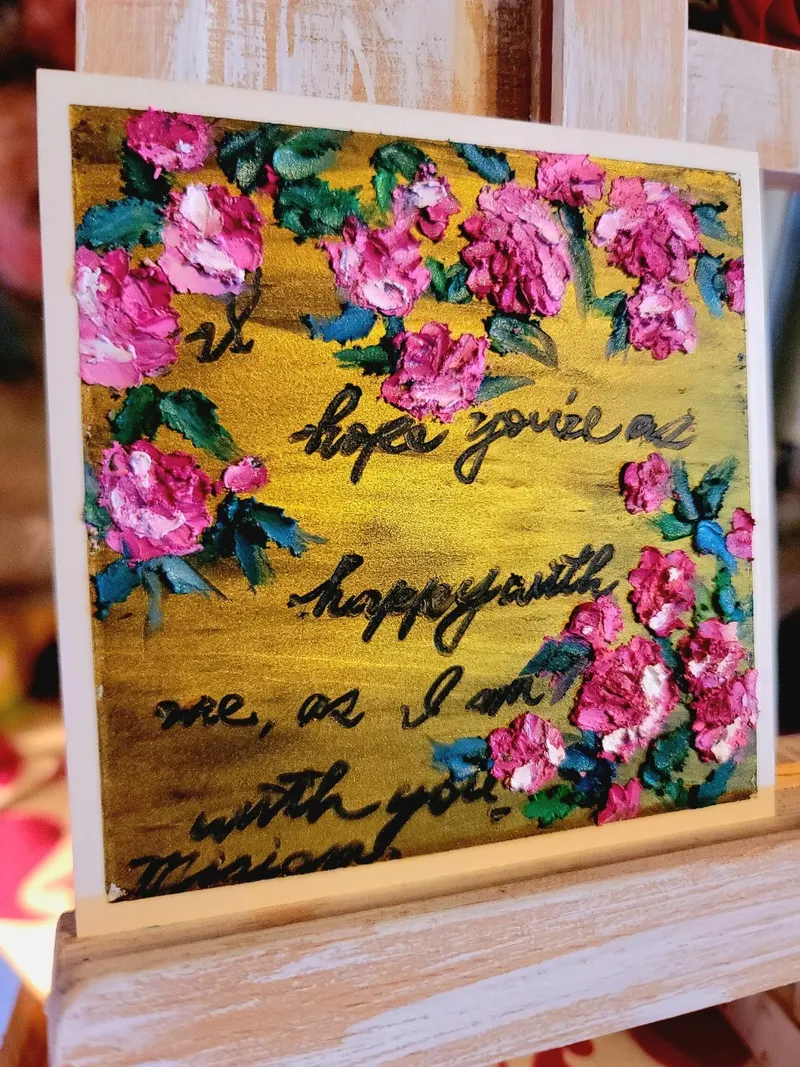 I
hope you're as
happy with
me, as I am
with you.
Miriam.